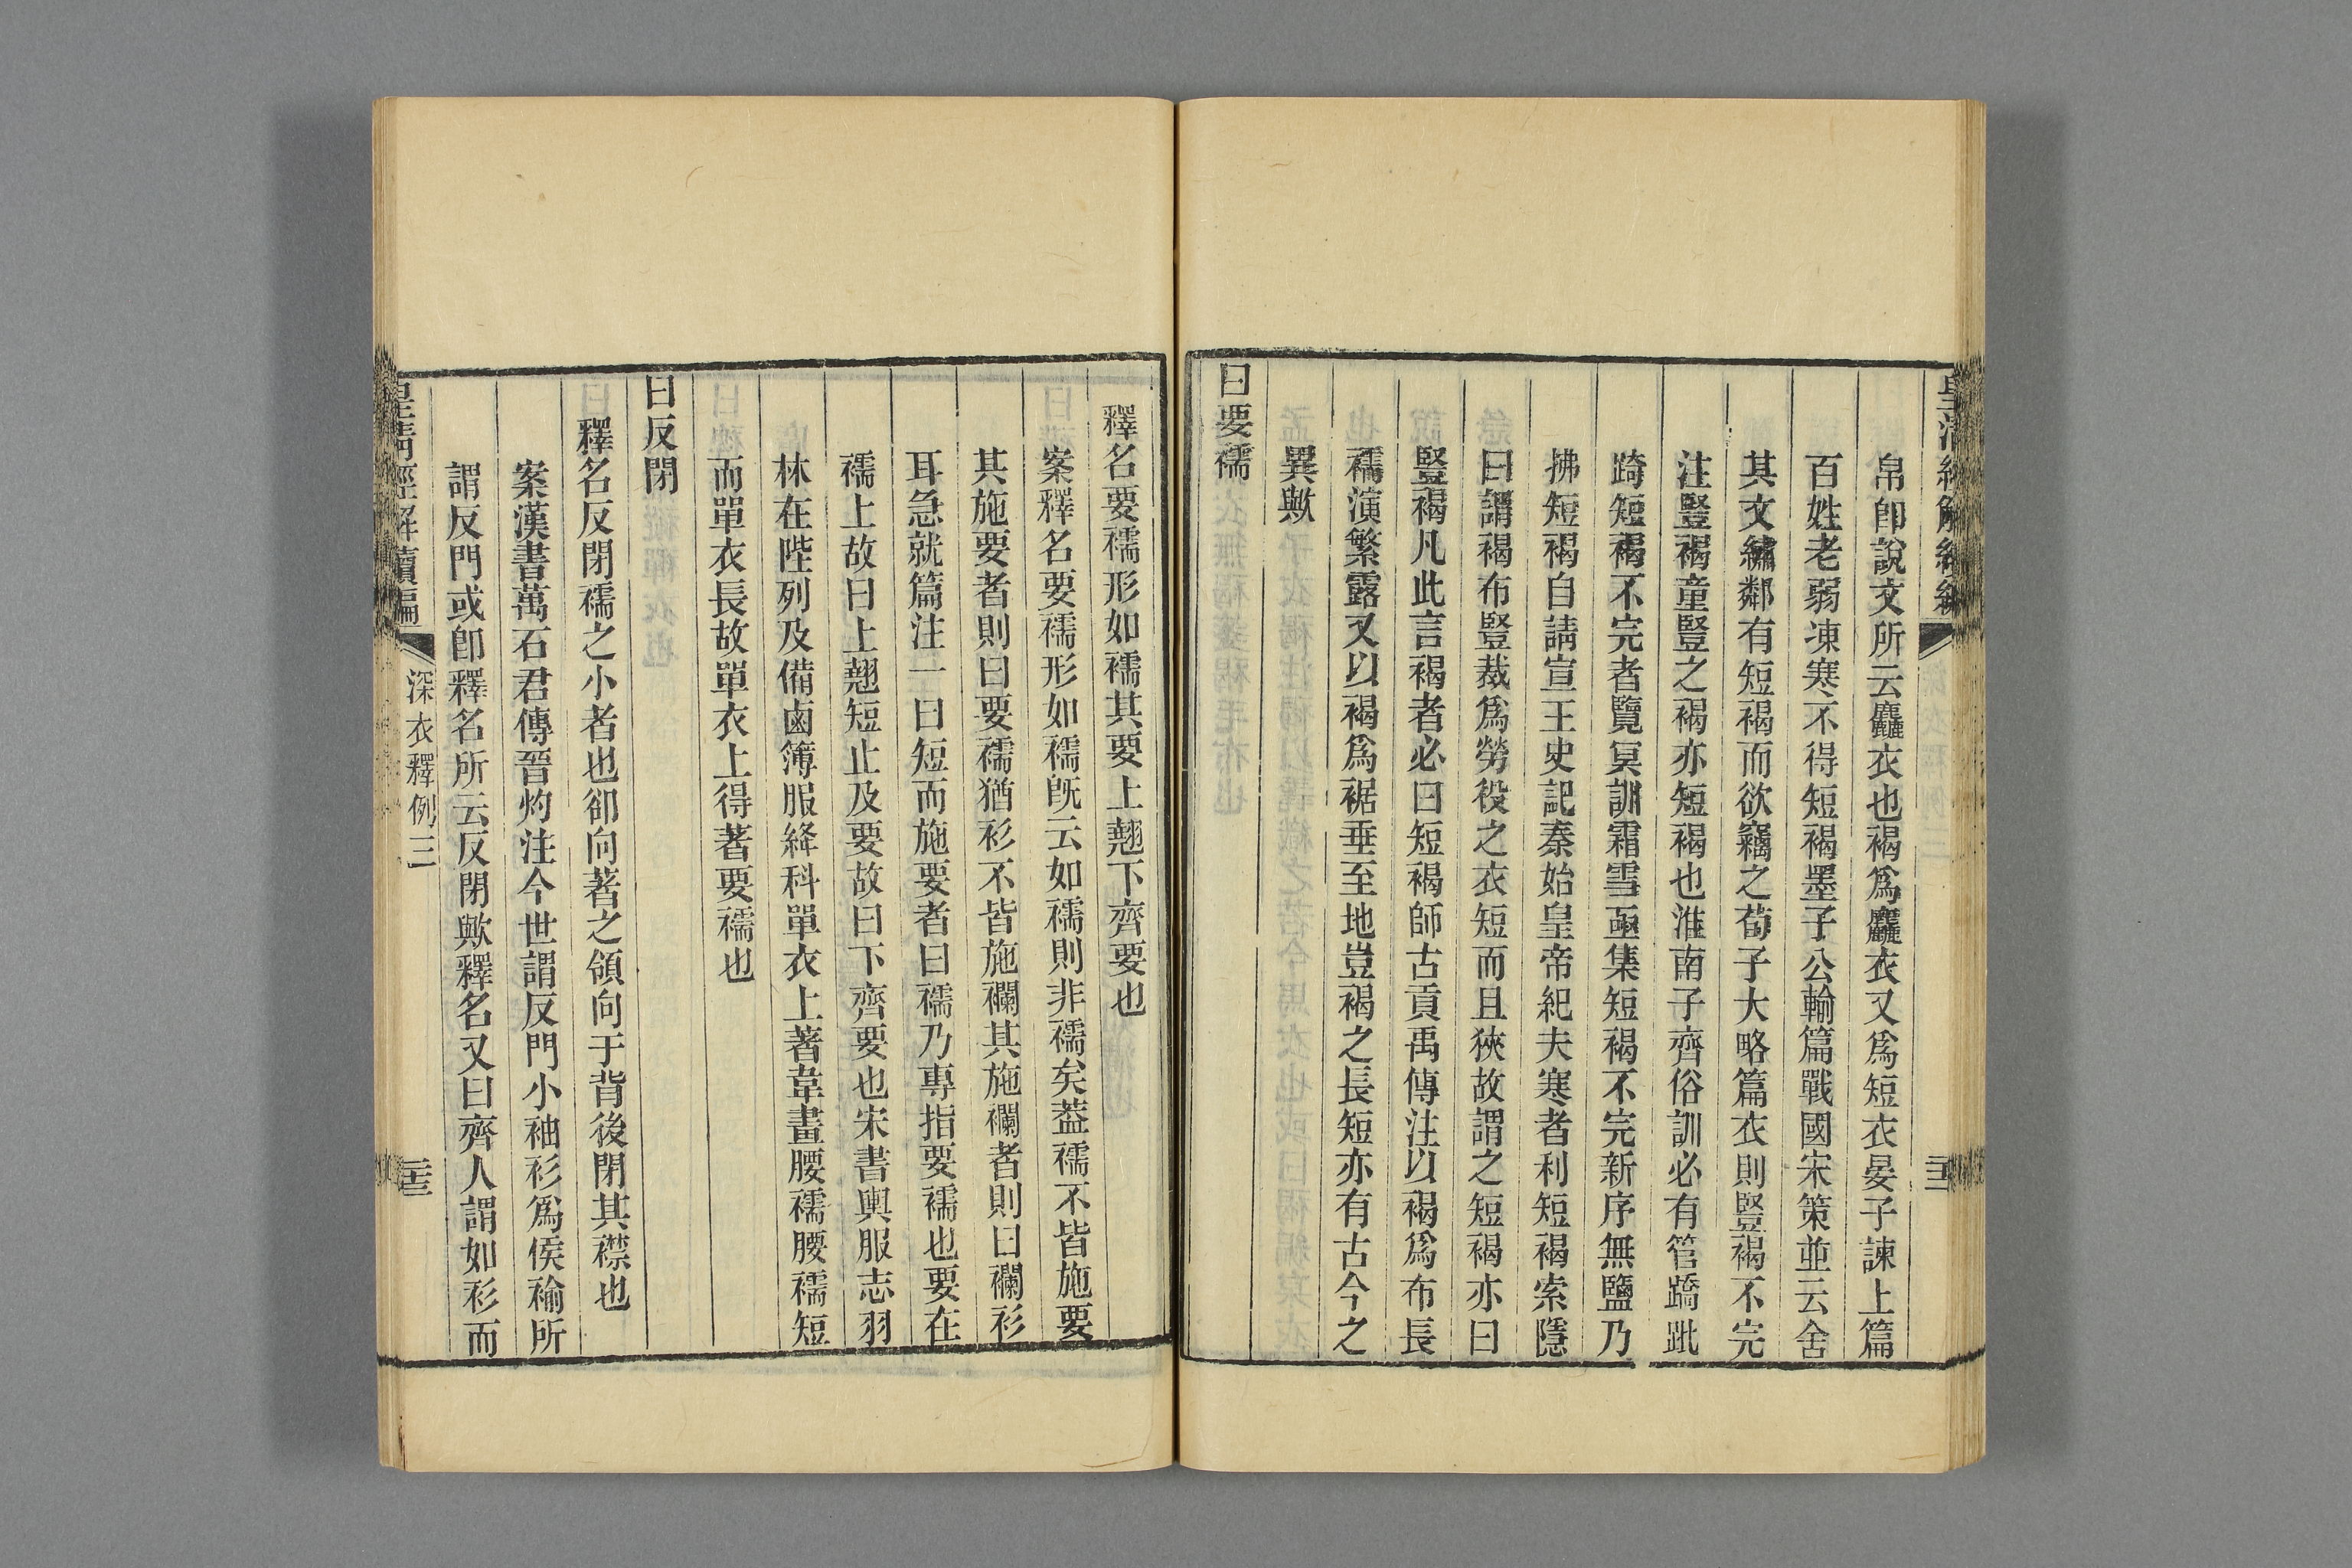 帛卽說文所云麤衣也褐爲麤衣又爲短衣晏子諫上篇
百姓老弱凍寒不得短褐墨子公輸篇戰國宋策並云舍
其文繡鄰有短褐而欲竊之荀子大略篇衣則豎褐不完
注豎褐童豎之褐亦短褐也淮南子齊俗訓必有管蹻跐
踦短褐不完者覽冥訓霜雪亟集短褐不完新序無鹽乃
拂短褐自請宣王史記秦始皇帝紀夫寒者利短褐索隱
曰謂褐布豎裁爲勞役之衣短而且狹故謂之短褐亦曰
豎褐凡此言褐者必曰短褐師古貢禹傳注以褐爲布長
襦演繁露又以褐爲裾垂至地豈褐之長短亦有古今之
異歟
曰要襦
釋名要襦形如襦其要上翹下齊要也
案釋名要襦形如襦旣云如襦則非襦矣葢襦不皆施要
其施要者則曰要襦猶衫不皆施襴其施襴者則曰襴衫
耳急就篇注一曰短而施要者曰襦乃專指要襦也要在
襦上故曰上翹短止及要故曰下齊要也宋書輿服志羽
林在陛列及備鹵簿服絳科單衣上著韋畫腰襦腰襦短
而單衣長故單衣上得著要襦也
曰反閉
釋名反閉襦之小者也卻向著之領向于背後閉其襟也
案漢書萬石君傳晉灼注今世謂反門小袖衫爲侯褕所
謂反門或卽釋名所云反閉歟釋名又曰齊人謂如衫而
皇清經解續編
深衣釋例三